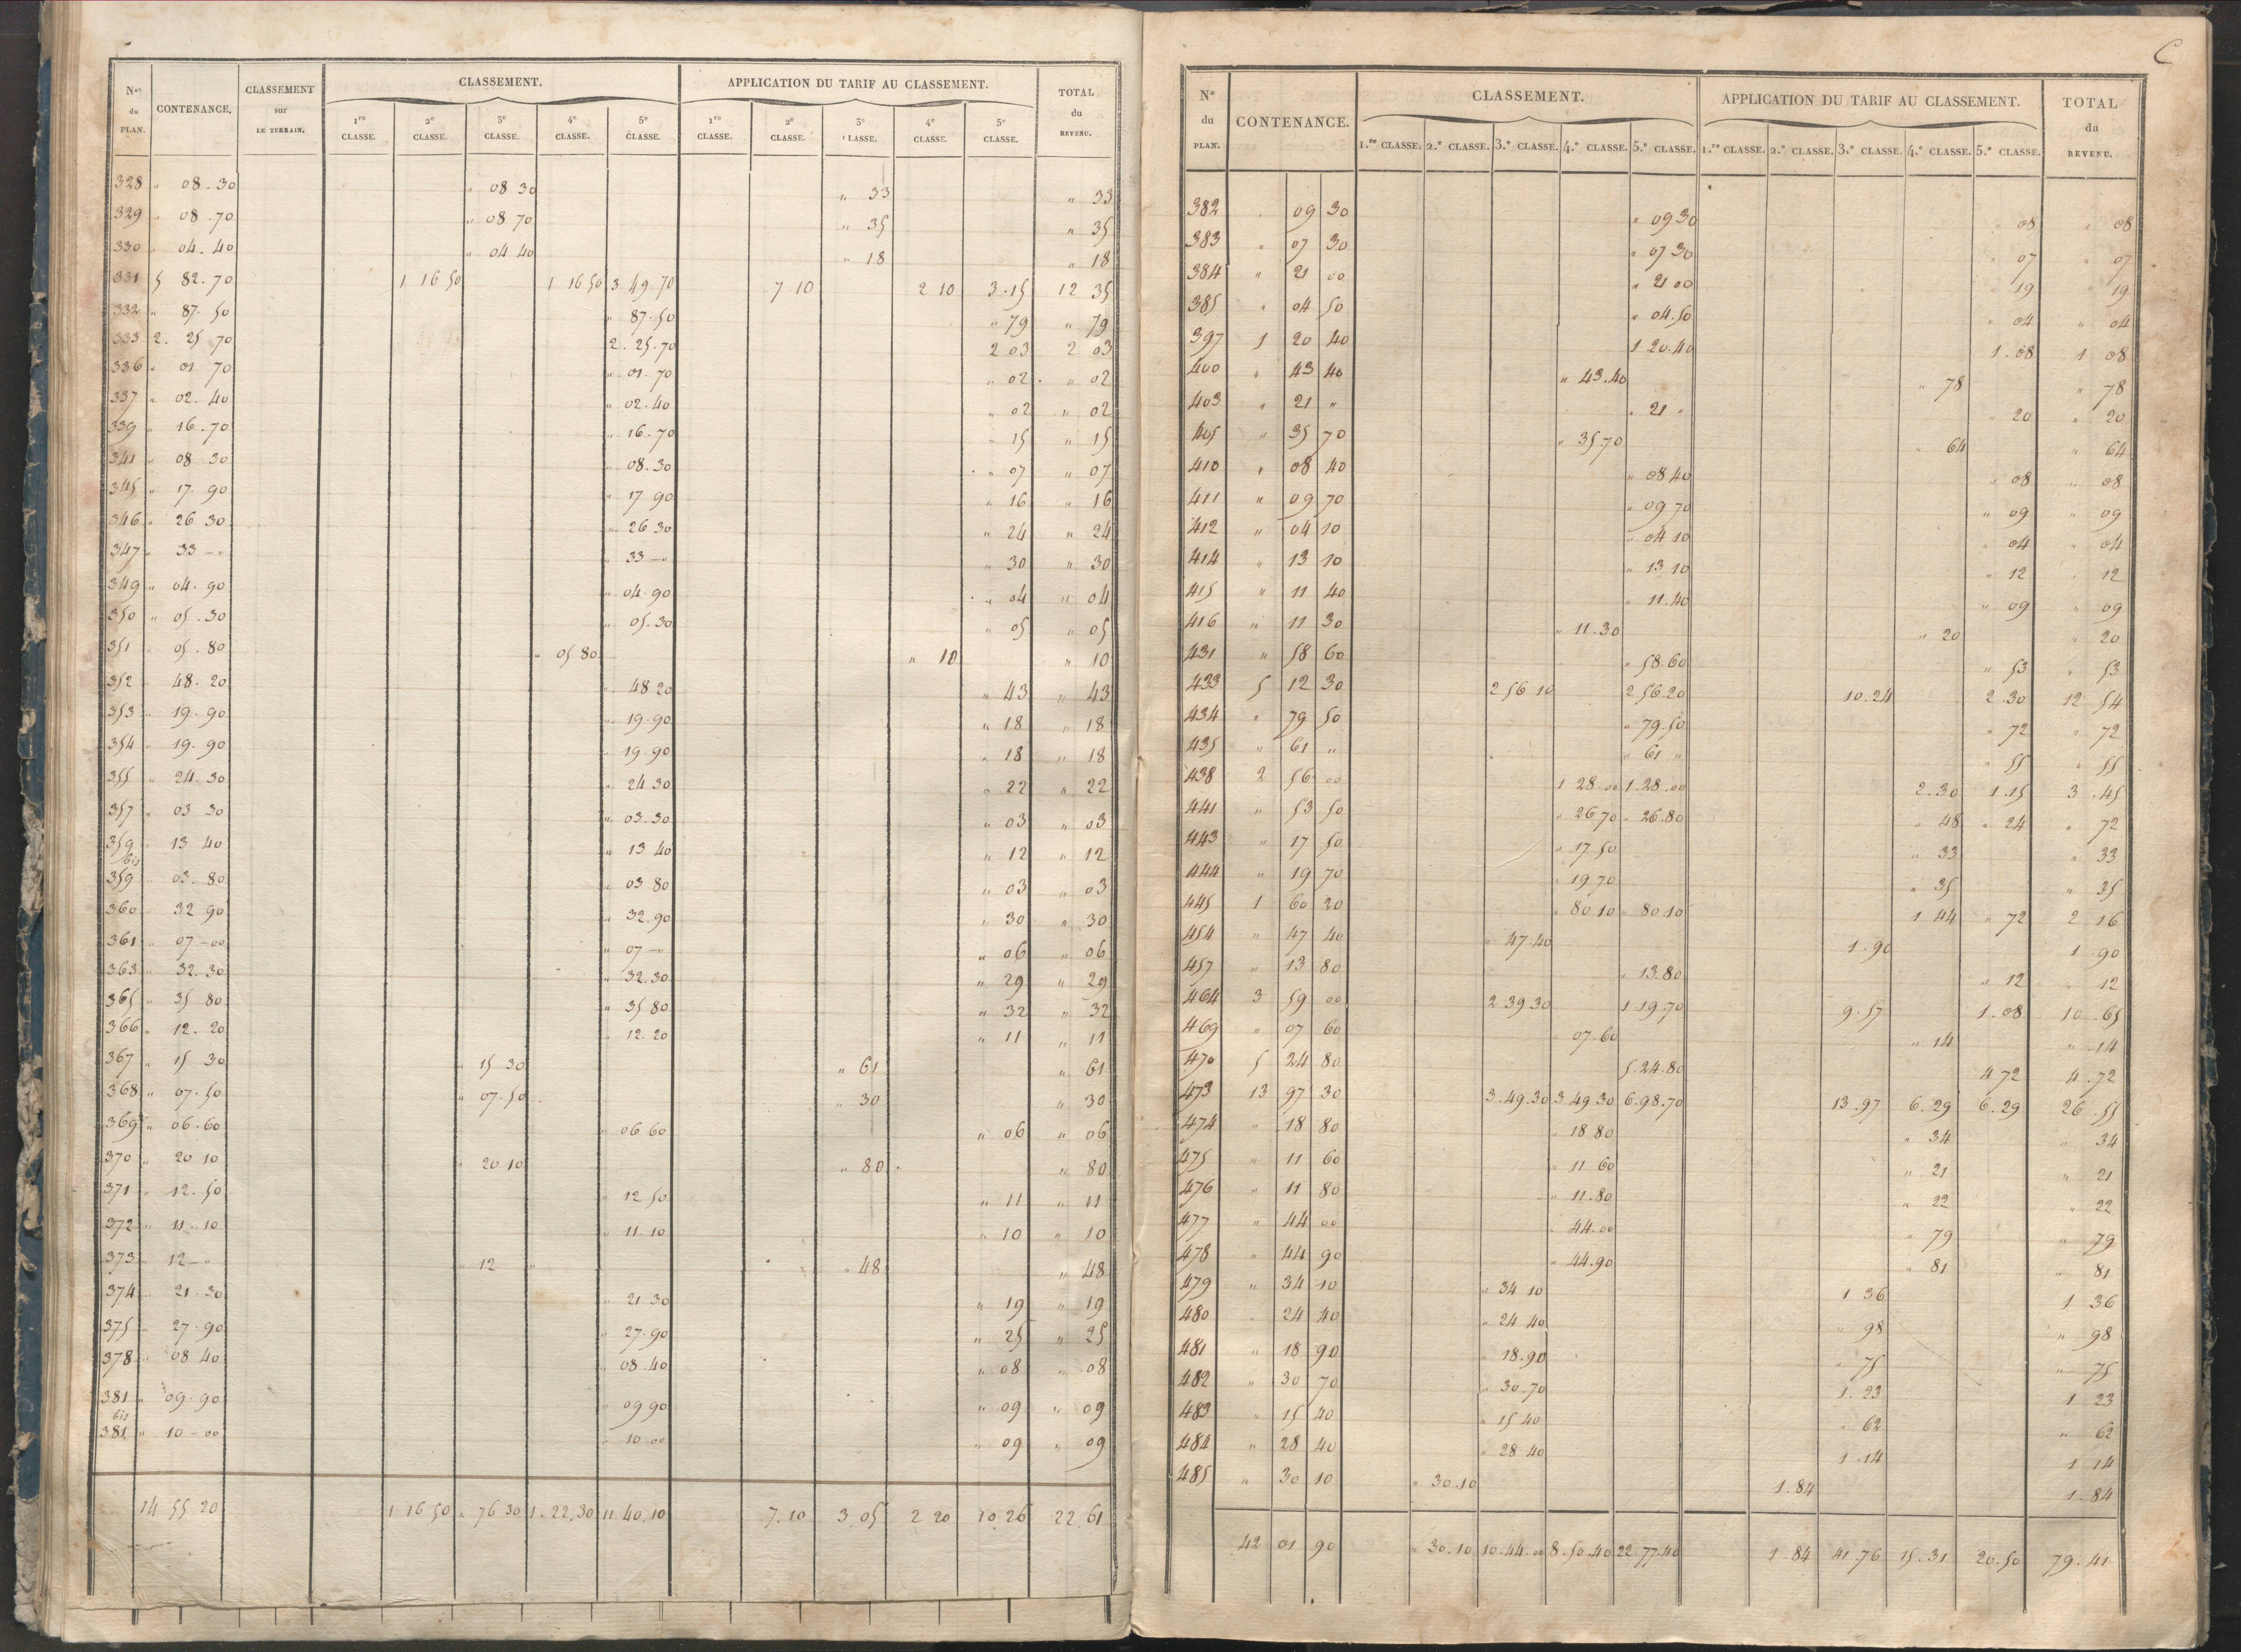 Nos du PLAN. CONTENANCE. CLASSEMENT sur LE TERRAIN. CLASSEMENT. APPLICATION DU TARIF AU CLASSEMENT. TOTAL du REVENU.
1re CLASSE. 2e CLASSE. 3e CLASSE. 4e CLASSE. 5e CLASSE. 1re CLASSE. 2e CLASSE. 3e CLASSE. 4e CLASSE. 5e CLASSE.
328 " 08-30 " 08 30 " 33 " 33
329 " 08.70 " 08 70 " 35 " 35
330 " 04.40 " 04 40 " 18 " 18
331 5 82.70 1 16 50 1 16 50 3 49 70 7 10 2 10 3.15 12 35
332 " 87.50 " 87.50 " 79 " 79
333 2. 25 70 2. 25.70 2 03 2 03
336 " 01 70 " 01.70 " 02 " 02
337 " 02.40 " 02.40 " 02 " 02
339 " 16.70 " 16.70 " 15 " 15
341 " 08 30 " 08.30 " 07 " 07
345 " 17.90 " 17 90 " 16 " 16
346 " 26 30 " 26 30 " 24 " 24
347 " 33 - " " 33 - " " 30 " 30
349 " 04.90 " 04.90 " 04 " 04
350 " 05.30 " 05.30 " 05 " 05
351 " 05.80 " 05 80 " 10 " 10
352 " 48.20 " 48 20 " 43 " 43
353 " 19.90 " 19.90 " 18 " 18
354 " 19.90 " 19.90 " 18 " 18
355 " 24.30 " 24.30 " 22 " 22
357 " 03 30 " 03.30 " 03 " 03
359 " 13 40 " 13 40 " 12 " 12
bis
359 " 03.80 " 03 80 " 03 " 03
360 " 32 90 " 32.90 " 30 " 30
361 " 07-00 " 07 - " " 06 " 06
363 " 32.30 " 32.30 " 29 " 29
365 " 35 80 " 35 80 " 32 " 32
366 " 12.20 " 12.20 " 11 " 11
367 " 15 30 " 15 30 " 61 " 61
368 " 07.50 " 07.50 " 30 " 30
369 " 06.60 " 06 60 " 06 " 06
370 " 20 10 " 20 10 " 80 " " 80
371 " 12.50 " 12 50 " 11 " 11
372 " 11.10 " 11 10 " 10 " 10
373 " 12 - " " 12 " " 48 " 48
374 " 21.30 " 21 30 " 19 " 19
375 " 27.90 " 27.90 " 25 " 25
378 " 08 40 " 08.40 " 08 " 08
381 " 09.90 " 09 90 " 09 " 09
bis
381 " 10-00 " 10 00 " 09 " 09
14 55 20 1 16 50 " 76 30 1.22.30 11 40.10 7.10 3 05 2 20 10 26 22 61
C
No du PLAN. CONTENANCE. CLASSEMENT. APPLICATION DU TARIF AU CLASSEMENT. TOTAL du REVENU.
1.re CLASSE. 2.e CLASSE. 3.e CLASSE. 4.e CLASSE. 5.e CLASSE. 1.re CLASSE. 2.e CLASSE. 3.e CLASSE. 4.e CLASSE. 5.e CLASSE.
382 " 09 30 " 09 30 " 08 " 08
383 " 07 30 " 07 30 " 07 " 07
384 " 21 00 " 21 00 " 19 " 19
385 " 04 50 " 04.50 " 04 " 04
397 1 20 40 1 20.40 1.08 1 08
400 " 43 40 " 43.40 " 78 " 78
403 " 21 " " 21 " " 20 " 20
405 " 35 70 " 35.70 " 64 " 64
410 " 08 40 " 08 40 " 08 " 08
411 " 09 70 " 09 70 " 09 " 09
412 " 04 10 " 04 10 " 04 " 04
414 " 13 10 " 13 10 " 12 " 12
415 " 11 40 " 11.40 " 09 " 09
416 " 11 30 " 11.30 " 20 " 20
431 " 58 60 " 58.60 " 53 " 53
433 5 12 30 2 56 10 2 56.20 10.24 2.30 12 54
434 " 79 50 " 79.50 " 72 " 72
435 " 61 " " 61 " " 55 " 55
438 2 56 00 1 28.00 1.28.00 2.30 1.15 3.45
441 " 53 50 " 26 70 " 26.80 " 48 " 24 " 72
443 " 17 50 " 17 50 " 33 " 33
444 " 19 70 " 19 70 " 35 " 35
445 1 60 20 " 80 10 " 80.10 1 44 " 72 2 16
454 " 47 40 " 47.40 1.90 1.90
457 " 13 80 " 13.80 " 12 " 12
464 3 59 00 2 39 30 1 19.70 9.57 1.08 10.65
469 " 07 60 " 07.60 " 14 " 14
470 5 24 80 5.24.80 4 72 4.72
473 13 97 30 3.49.30 3 49 30 6.98.70 13.97 6.29 6.29 26.55
474 " 18 80 " 18 80 " 34 " 34
475 " 11 60 " 11 60 " 21 " 21
476 " 11 80 " 11.80 " 22 " 22
477 " 44 00 " 44.00 " 79 " 79
478 " 44 90 " 44.90 " 81 " 81
479 " 34 10 " 34 10 1 36 1 36
480 " 24 40 " 24 40 " 98 " 98
481 " 18 90 " 18.90 " 75 " 75
482 " 30 70 " 30.70 1.23 1 23
483 " 15 40 " 15 40 " 62 " 62
484 " 28 40 " 28 40 1.14 1 14
485 " 30 10 " 30.10 1.84 1.84
42 01 90 " 30.10 10.44.00 8.50.40 22.77.40 1.84 41.76 15.31 20.50 79.41